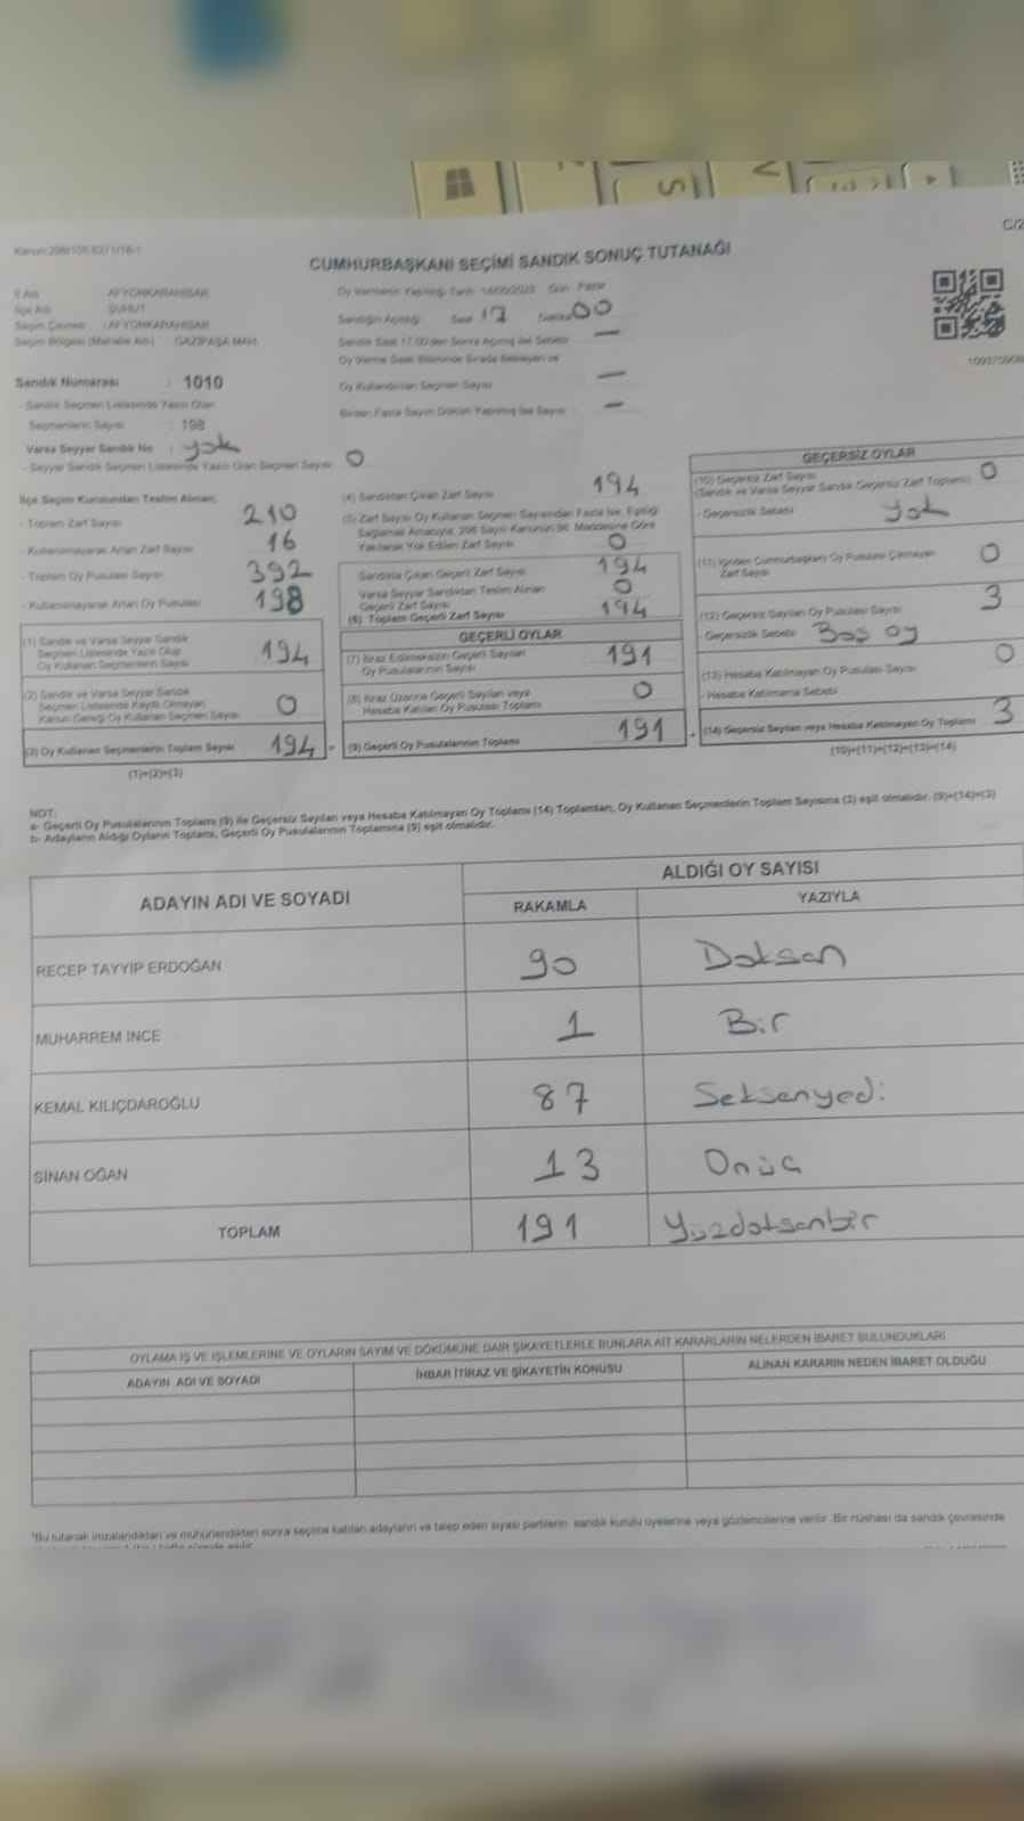 C/2
CUMHURBAŞKANI SEÇİMİ SANDIK SONUÇ TUTANAĞI
İl Adı : AFYONKARAHİSAR
İlçe Adı : ŞUHUT
Seçim Çevresi : AFYONKARAHİSAR
Seçim Bölgesi (Mahalle Adı) : GAZİPAŞA MAH.
Oy Vermenin Yapıldığı Tarih : 14/05/2023 Gün : Pazar
Sandığın Açıldığı Saat : 17 Dakika : 00
Sandık Saat 17.00'den Sonra Açılmış ise Sebebi —
Oy Verme Saati Bitiminde Sırada Bekleyen ve
Oy Kullandırılan Seçmen Sayısı —
Birden Fazla Sayım Döküm Yapılmış ise Sayısı —
Sandık Numarası : 1010
- Sandık Seçmen Listesinde Yazılı Olan
Seçmenlerin Sayısı : 198
Varsa Seyyar Sandık No : yok
- Seyyar Sandık Seçmen Listesinde Yazılı Olan Seçmen Sayısı 0
İlçe Seçim Kurulundan Teslim Alınan;
- Toplam Zarf Sayısı 210
- Kullanılmayarak Artan Zarf Sayısı 16
- Toplam Oy Pusulası Sayısı 392
- Kullanılmayarak Artan Oy Pusulası 198
(1) Sandık ve Varsa Seyyar Sandık
Seçmen Listesinde Yazılı Olup
Oy Kullanan Seçmenlerin Sayısı 194
(2) Sandık ve Varsa Seyyar Sandık
Seçmen Listesinde Kayıtlı Olmayan
Kanun Gereği Oy Kullanan Seçmen Sayısı 0
(3) Oy Kullanan Seçmenlerin Toplam Sayısı 194
(1)+(2)=(3)
(4) Sandıktan Çıkan Zarf Sayısı 194
(5) Zarf Sayısı Oy Kullanan Seçmen Sayısından Fazla ise, Eşitliği
Sağlamak Amacıyla, 298 Sayılı Kanunun 98. Maddesine Göre
Yakılarak Yok Edilen Zarf Sayısı 0
Sandıkta Çıkan Geçerli Zarf Sayısı 194
Varsa Seyyar Sandıktan Teslim Alınan
Geçerli Zarf Sayısı 0
(6) Toplam Geçerli Zarf Sayısı 194
GEÇERLİ OYLAR
(7) İtiraz Edilmeksizin Geçerli Sayılan
Oy Pusulalarının Sayısı 191
(8) İtiraz Üzerine Geçerli Sayılan veya
Hesaba Katılan Oy Pusulası Toplamı 0
(9) Geçerli Oy Pusulalarının Toplamı 191
GEÇERSİZ OYLAR
(10) Geçersiz Zarf Sayısı
(Sandık ve Varsa Seyyar Sandık Geçersiz Zarf Toplamı) 0
- Geçersizlik Sebebi yok
(11) İçinden Cumhurbaşkanı Oy Pusulası Çıkmayan
Zarf Sayısı 0
(12) Geçersiz Sayılan Oy Pusulası Sayısı 3
- Geçersizlik Sebebi Boş oy
(13) Hesaba Katılmayan Oy Pusulası Sayısı 0
- Hesaba Katılmama Sebebi
(14) Geçersiz Sayılan veya Hesaba Katılmayan Oy Toplamı 3
(10)+(11)+(12)+(13)=(14)
NOT:
a- Geçerli Oy Pusulalarının Toplamı (9) ile Geçersiz Sayılan veya Hesaba Katılmayan Oy Toplamı (14) Toplamları, Oy Kullanan Seçmenlerin Toplam Sayısına (3) eşit olmalıdır. (9)+(14)=(3)
b- Adayların Aldığı Oyların Toplamı, Geçerli Oy Pusulalarının Toplamına (9) eşit olmalıdır.
ADAYIN ADI VE SOYADI ALDIĞI OY SAYISI
RAKAMLA YAZIYLA
RECEP TAYYİP ERDOĞAN 90 Doksan
MUHARREM İNCE 1 Bir
KEMAL KILIÇDAROĞLU 87 Seksenyedi
SİNAN OĞAN 13 Onüç
TOPLAM 191 Yüzdoksanbir
OYLAMA İŞ VE İŞLEMLERİNE VE OYLARIN SAYIM VE DÖKÜMÜNE DAİR ŞİKAYETLERLE BUNLARA AİT KARARLARIN NELERDEN İBARET BULUNDUKLARI
ADAYIN ADI VE SOYADI İHBAR İTİRAZ VE ŞİKAYETİN KONUSU ALINAN KARARIN NEDEN İBARET OLDUĞU
*Bu tutanak imzalandıktan ve mühürlendikten sonra seçime katılan adayların ve talep eden siyasi partilerin sandık kurulu üyelerine veya gözlemcilerine verilir. Bir nüshası da sandık çevresinde